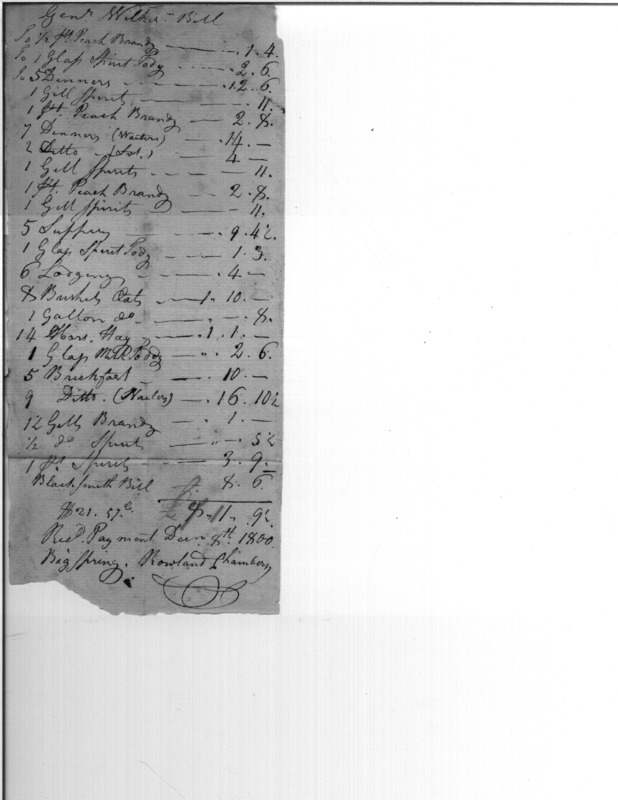 Genl Wilkn Bill
To ½ pt. Peach Brandy — . 1 . 4.
To 1 Glass Spirit Tody — . 2 . 6.
To 5 Dinners — . 12 . 6.
1 Gill Spirits — 11.
1 pt. Peach Brandy — 2 . 8.
7 Dinners (Waiters) — . 14 . —
2 Ditto — 4 —
1 Gill Spirits — 11.
1 pt. Peach Brandy — 2 . 8.
1 Gill Spirits — 11.
5 Suppers — . 9 . 4½.
1 Glass Spirit Tody — 1 . 3.
6 Lodgings — . 4 . —
8 Bushels Oats — 1 . 10 . —
1 Gallon do — . 8.
14 Hors. Hay — . 1 . 1 . —
1 Glass Milk Tody — . 2 . 6.
5 Brickfast — . 10 . —
9 Ditto. (Waiters) — . 16 . 10½
1½ Gills Brandy — . 1 . —
½ do Spirits — . 5½
1 pt Spirits — 3 . 9.
Blacksmith Bill 8 . 6.
$21. 57 Cs. 11 . 9½.
Recd. Payment Decm 8th. 1800
Big Spring. Rowland Chambers